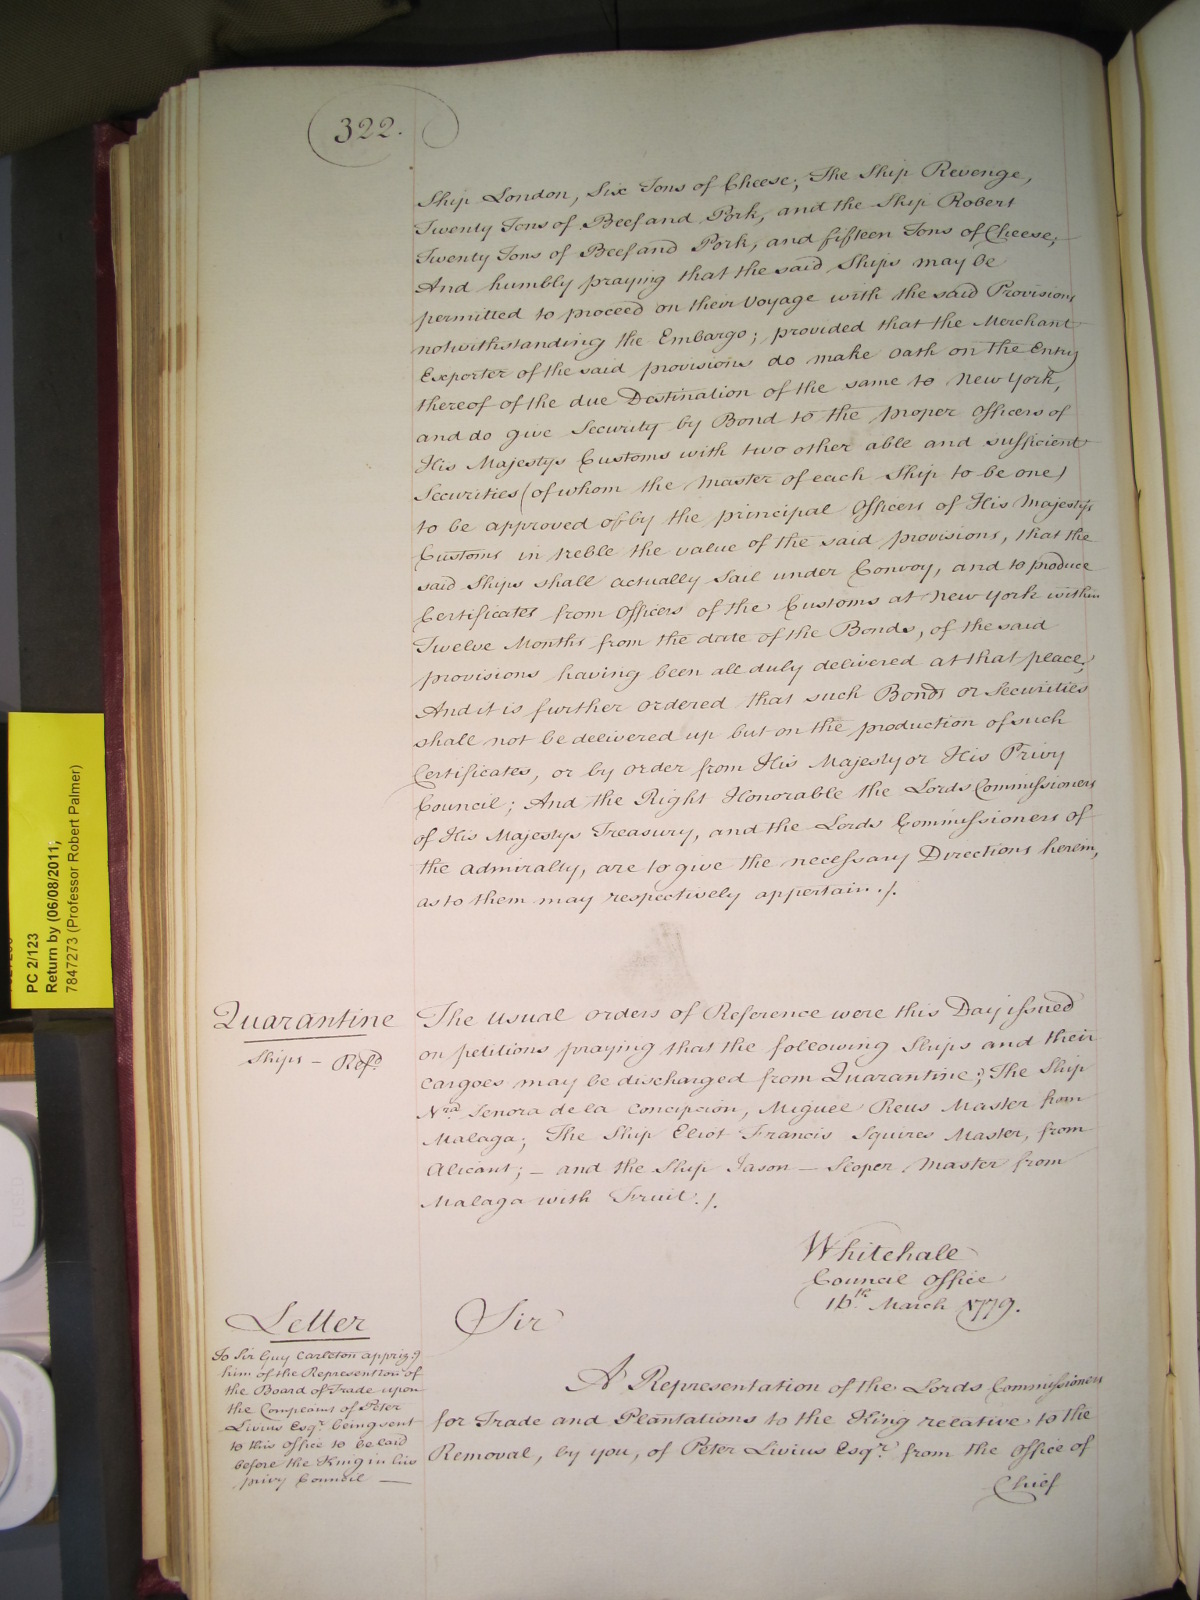 322.
Ship London, Six Tons of Cheese; The Ship Revenge,
Twenty Tons of Beef and Pork, and the Ship Robert
Twenty Tons of Beef and Pork, and fifteen Tons of Cheese;
And humbly praying that the said Ships may be
permitted to proceed on their Voyage with the said Provisions
notwithstanding the Embargo; provided that the Merchant
Exporter of the said provisions do make Oath on the Entry
thereof of the due Destination of the same to New York,
and do give Security by Bond to the proper Officers of
His Majestys Customs with two other able and sufficient
Securities (of whom the Master of each Ship to be one)
to be approved of by the principal Officers of His Majestys
Customs in treble the value of the said provisions, that the
said Ships shall actually Sail under Convoy, and to produce
Certificates from Officers of the Customs at New York within
Twelve Months from the date of the Bonds, of the said
provisions having been all duly delivered at that place;
And it is further ordered that such Bonds or Securities
shall not be delivered up but on the production of such
Certificates, or by order from His Majesty or His Privy
Council; And the Right Honorable the Lords Commissioners
of His Majestys Treasury, and the Lords Commissioners of
the Admiralty, are to give the necessary Directions herein,
as to them may respectively appertain ./.
Quarantine
Ships – Refd.
The Usual orders of Reference were this Day issued
on petitions praying that the following Ships and their
Cargoes may be discharged from Quarantine; The Ship
Nra. Senora de la Concepcion, Miguel Reus Master from
Malaga; The Ship Eliot Francis Squires Master, from
Alicant; – and the Ship Jason – Soper Master from
Malaga with Fruit ./.
Whitehall
Council Office
16th. March 1779.
Letter
To Sir Guy Carleton apprizg
him of the Representron of
the Board of Trade upon
the Complaint of Peter
Livius Esqr. being sent
to this Office to be laid
before the King in his
privy Council —
Sir
A Representation of the Lords Commissioners
for Trade and Plantations to the King relative to the
Removal, by you, of Peter Livius Esqr. from the Office of
Chief
PC 2/123
Return by (06/08/2011;
7847273 (Professor Robert Palmer)